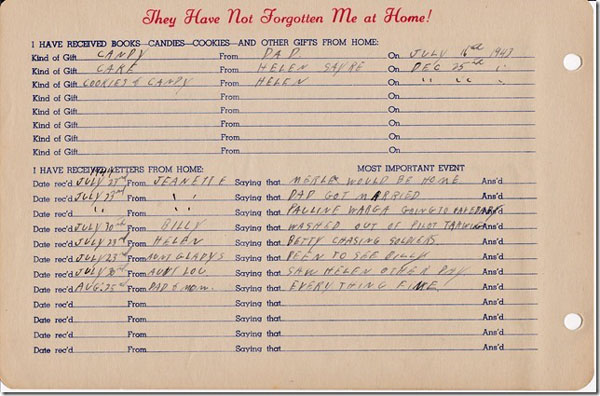 They Have Not Forgotten Me at Home!
I HAVE RECEIVED BOOKS—CANDIES—COOKIES—AND OTHER GIFTS FROM HOME:
Kind of Gift CANDY From DAD On JULY 16th 1943
Kind of Gift CAKE From HELEN SAYRE On DEC 25th "
Kind of Gift COOKIES & CANDY From HELEN On " " "
Kind of Gift From On
Kind of Gift From On
Kind of Gift From On
Kind of Gift From On
Kind of Gift From On
I HAVE RECEIVED LETTERS FROM HOME: MOST IMPORTANT EVENT
Date rec'd JULY From JEANETTE Saying that MERLE WOULD BE HOME Ans'd
Date rec'd JULY From " " Saying that DAD GOT MARRIED Ans'd
Date rec'd " " From Saying that PAULINE WARGA GOING TO HAVE Ans'd
Date rec'd JULY 30th From BILLY Saying that WASHED OUT OF PILOT Ans'd
Date rec'd JULY From HELEN Saying that BETTY CHASING SOLDIERS Ans'd
Date rec'd JULY 23rd From AUNT GLADYS Saying that BEEN TO SEE BILLY Ans'd
Date rec'd JULY 30th From AUNT LOU Saying that SAW HELEN OTHER DAY. Ans'd
Date rec'd AUG. 25th From DAD & MOM. Saying that EVERYTHING FINE. Ans'd
Date rec'd From Saying that Ans'd
Date rec'd From Saying that Ans'd
Date rec'd From Saying that Ans'd
Date rec'd From Saying that Ans'd